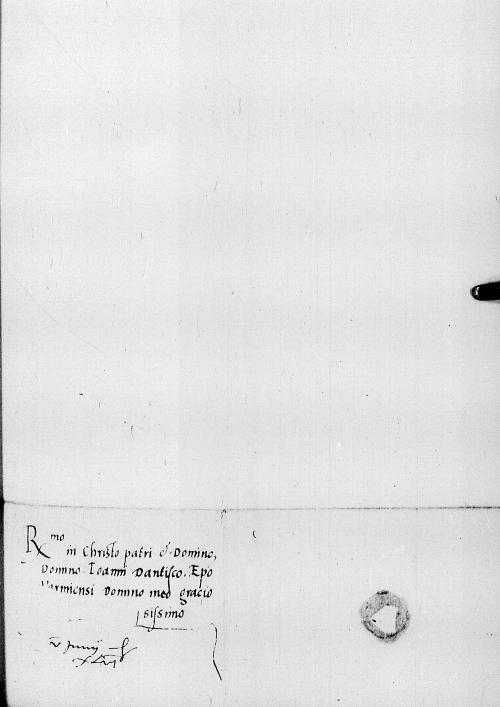 Rmo
in Christo patri & Domino,
Domino Ioanni Dantisco. Epo
Varmiensi Domino meo gracio
sissimo
Junij